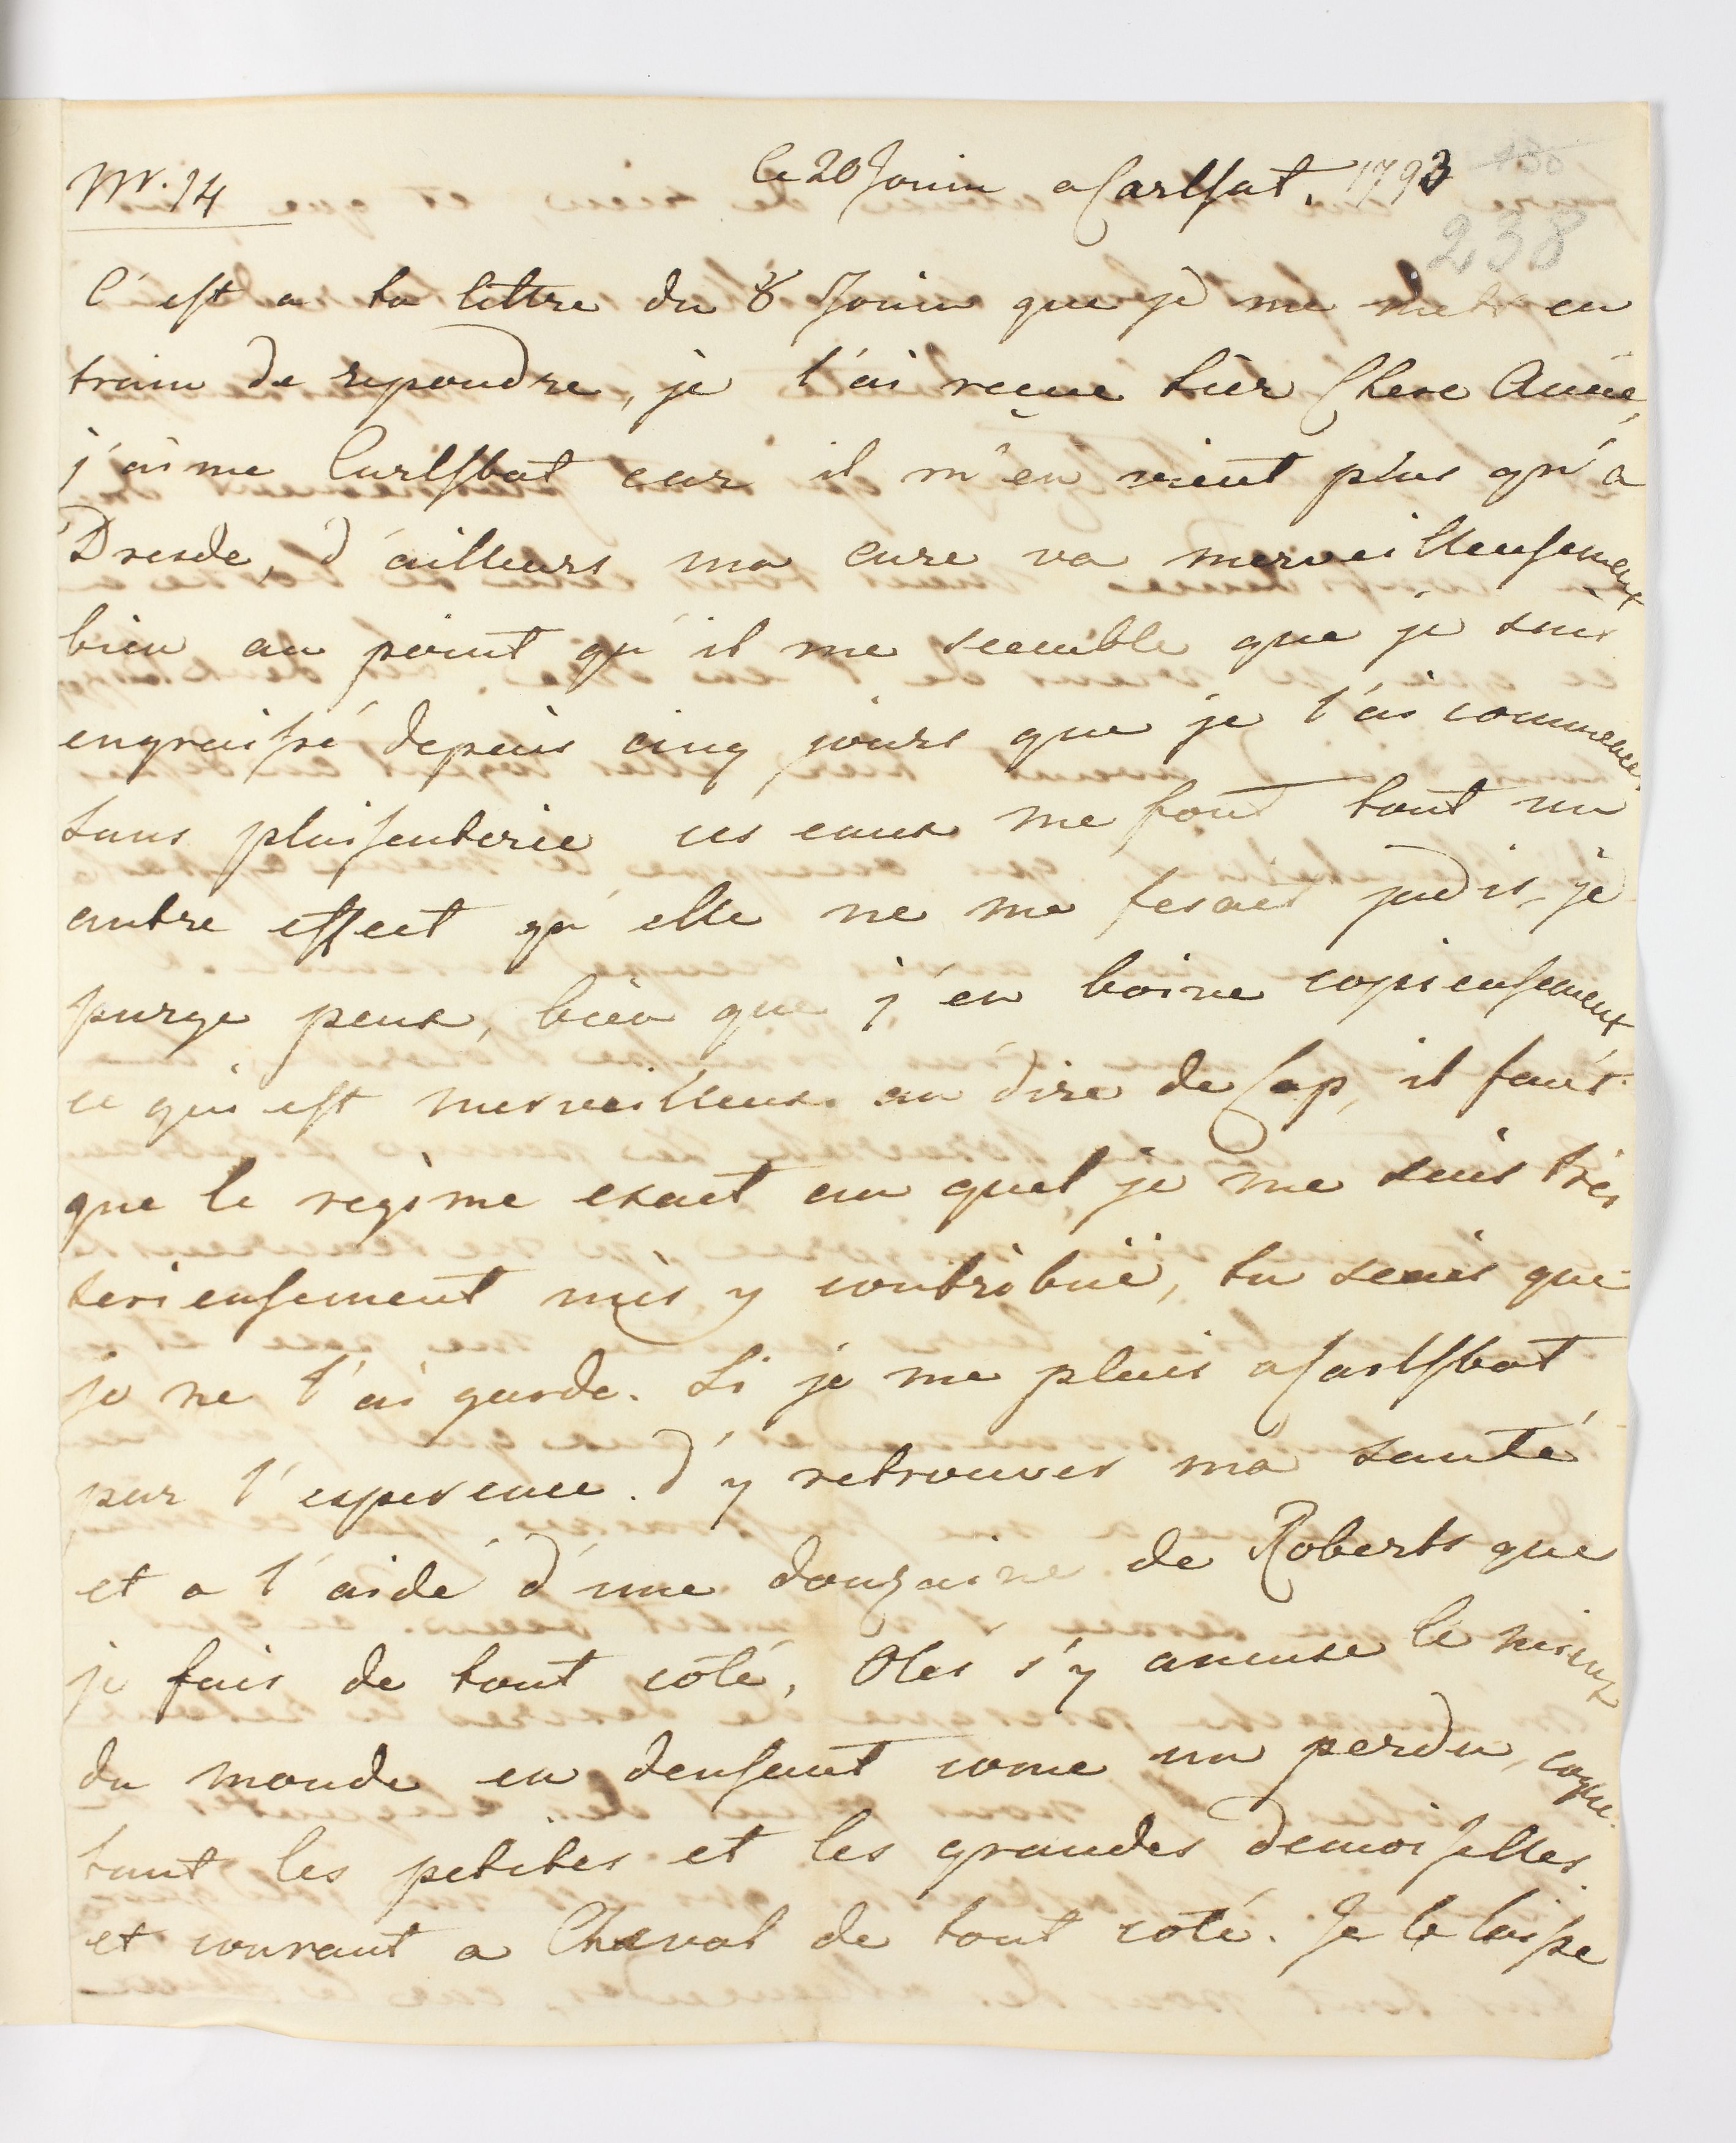 Nr. 14
le 20 Jouin a Carlsat. 1793
238
C'est a ta lettre du 8 Jouin que je me mets en
train de repondre, je l'ai reçue hier Chere Amie,
j'aime Carlsbat car il m'en vient plus qu'a
Dresde, d'ailleurs ma cure va merveilleusement
bien au point qu'il me semble que je suis
engraissé depuis cinq jours que je l'ai commencé,
sans plaisenterie ces eaux me font tout un
autre effect qu'elle ne me fesaet jadis, je
purge peux, bien que j'en boive copieusement
ce qui est merveilleux au dire de Cap, il faut
que le regime exact au quel je me suis très
serieusement mis y contribuë, tu seais que
je ne l'ai garde. Si je me plais a Carlsbat
par l'esperence d'y retrouver ma santé
et a l'aide d'une douzaine de Roberts que
je fais de tout coté, Oles s'y amuse le mieux
du monde en densant come un perdu, coque-
tant les petites et les grandes demoiselles.
et courant a Cheval de tout coté. Je le laisse